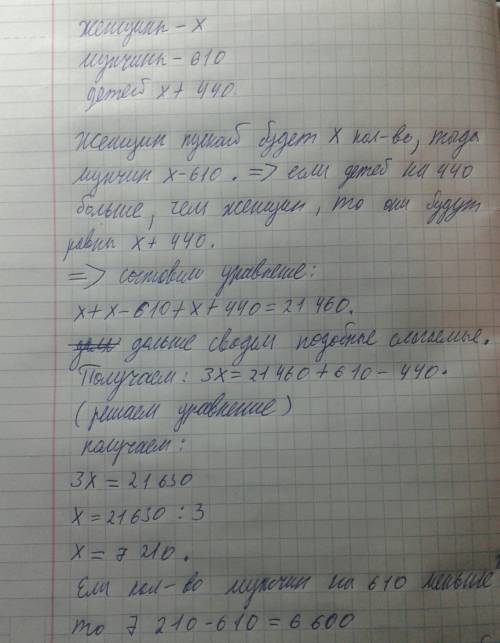 женщины - x
мужчины - 610
детей x + 440
Женщин пускай будет x кол-во, тогда
мужчин x-610. => если детей на 440
больше, чем женщин, то они будут
равны x + 440.
=> составим уравнение:
x+x-610+x+440=21460.
дальше сводим подобные слагаемые.
Получаем: 3x=21460+610-440.
(решаем уравнение)
получаем:
3x = 21630
x = 21630 : 3
x = 7 210.
Если кол-во мужчин на 610 меньше
то 7 210-610 = 6 600